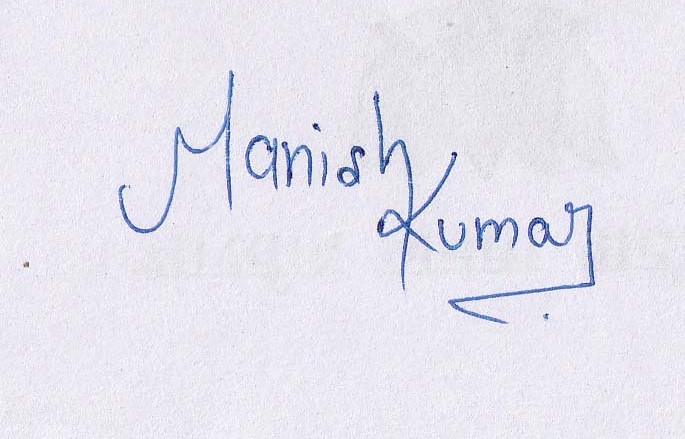 Manish
Kumar